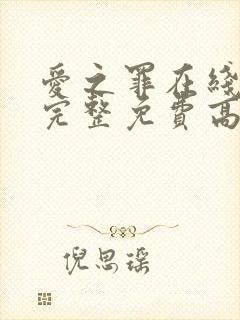 愛之罪在綫
完整免費高
倪思瑶